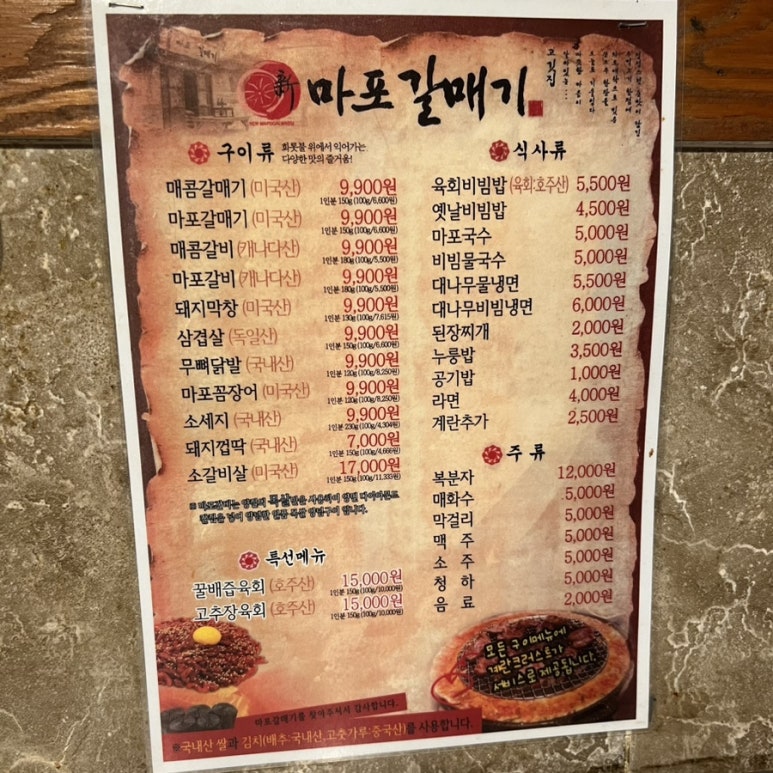 新 마포갈매기
고깃집
구이류 화롯불 위에서 익어가는
다양한 맛의 즐거움!
매콤갈매기 (미국산) 9,900원
1인분 150g (100g/6,600원)
마포갈매기 (미국산) 9,900원
1인분 150g (100g/6,600원)
매콤갈비 (캐나다산) 9,900원
1인분 180g (100g/5,500원)
마포갈비 (캐나다산) 9,900원
1인분 180g (100g/5,500원)
돼지막창 (미국산) 9,900원
1인분 130g (100g/7,615원)
삼겹살 (독일산) 9,900원
1인분 150g (100g/6,600원)
무뼈닭발 (국내산) 9,900원
1인분 120g (100g/8,250원)
마포꼼장어 (미국산) 9,900원
1인분 120g (100g/8,250원)
소세지 (국내산) 9,900원
1인분 230g (100g/4,304원)
돼지껍딱 (국내산) 7,000원
1인분 150g (100g/4,666원)
소갈비살 (미국산) 17,000원
1인분 150g (100g/11,333원)
특선메뉴
꿀배즙육회 (호주산) 15,000원
1인분 150g (100g/10,000원)
고추장육회 (호주산) 15,000원
1인분 150g (100g/10,000원)
식사류
육회비빔밥 (육회:호주산) 5,500원
옛날비빔밥 4,500원
마포국수 5,000원
비빔물국수 5,000원
대나무물냉면 5,500원
대나무비빔냉면 6,000원
된장찌개 2,000원
누룽밥 3,500원
공기밥 1,000원
라면 4,000원
계란추가 2,500원
주류
복분자 12,000원
매화수 5,000원
막걸리 5,000원
맥주 5,000원
소주 5,000원
청하 5,000원
음료 2,000원
모든 구이메뉴에
계란크러스트가
서비스로 제공됩니다.
마포갈매기를 찾아주셔서 감사합니다.
※국내산 쌀과 김치(배추:국내산,고춧가루:중국산)를 사용합니다.